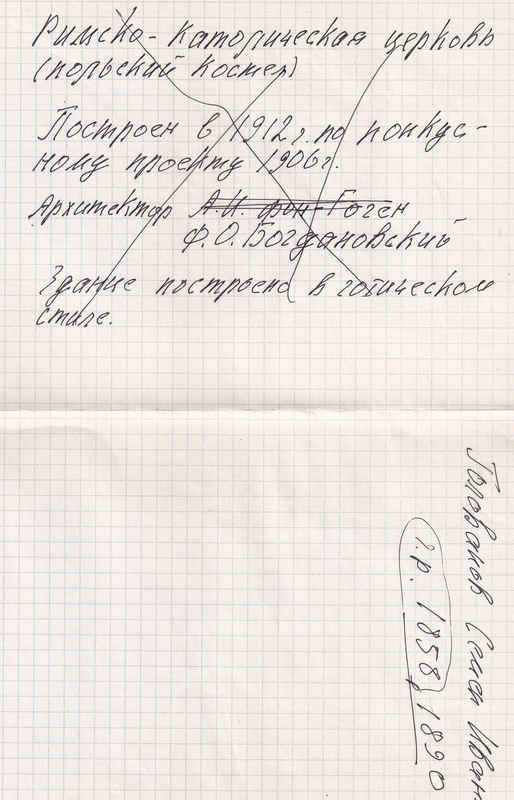 Римско-Католическая церковь
(польский костел)
Построен в 1912 г. по конкус-
ному проекту 1906 г.
Архитектор А.И. фон-Гоген
Ф.О. Богдановский
Здание построено в готическом
стиле.
Голованов Семен Иван
г.р. 1858, 1890